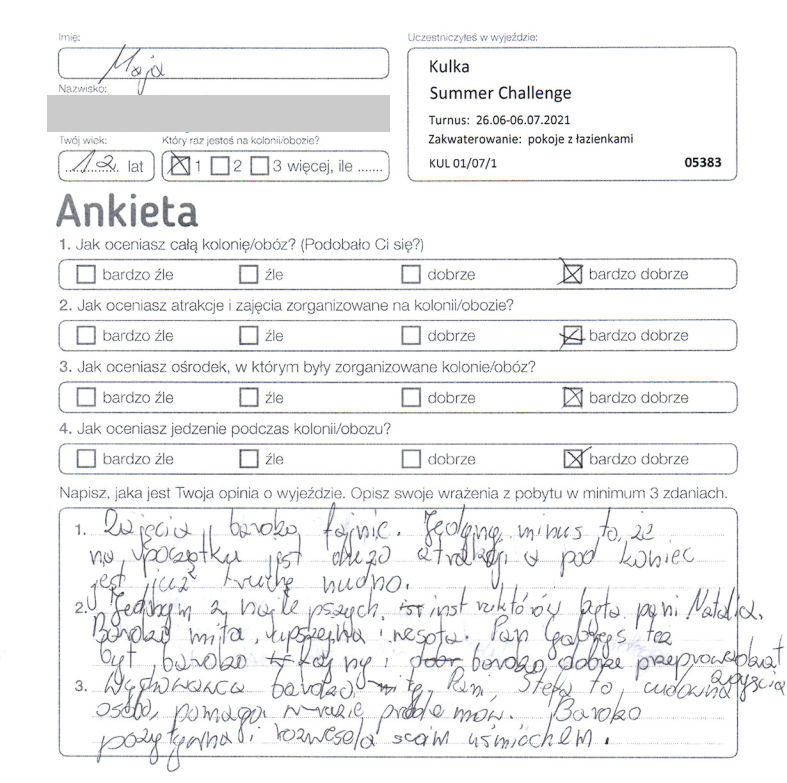 Imię:
Maja
Nazwisko:
Twój wiek:
12 lat
Który raz jesteś na kolonii/obozie?
1 2 3 więcej, ile .......
Uczestniczyłeś w wyjeździe:
Kulka
Summer Challenge
Turnus: 26.06-06.07.2021
Zakwaterowanie: pokoje z łazienkami
KUL 01/07/1 05383
Ankieta
1. Jak oceniasz całą kolonię/obóz? (Podobało Ci się?)
bardzo źle źle dobrze bardzo dobrze
2. Jak oceniasz atrakcje i zajęcia zorganizowane na kolonii/obozie?
bardzo źle źle dobrze bardzo dobrze
3. Jak oceniasz ośrodek, w którym były zorganizowane kolonie/obóz?
bardzo źle źle dobrze bardzo dobrze
4. Jak oceniasz jedzenie podczas kolonii/obozu?
bardzo źle źle dobrze bardzo dobrze
Napisz, jaka jest Twoja opinia o wyjeździe. Opisz swoje wrażenia z pobytu w minimum 3 zdaniach.
1. Zajęcia bardzo fajnie. Jedyny minus to, że
na początku jest dużo atrakcji a pod koniec
jest już trochę nudno.
2. Jednym z najlepszych instruktorów była pani Natalia.
Bardzo miła, uprzejma i wesoła. Pan też
był bardzo fajny i bardzo dobrze przeprowadzał
zajęcia
3. Wychowawca bardzo miła, Pani Stefa to cudowna
osoba, pomaga w razie problemów. Bardzo
pozytywna i rozwesela swoim uśmiechem.